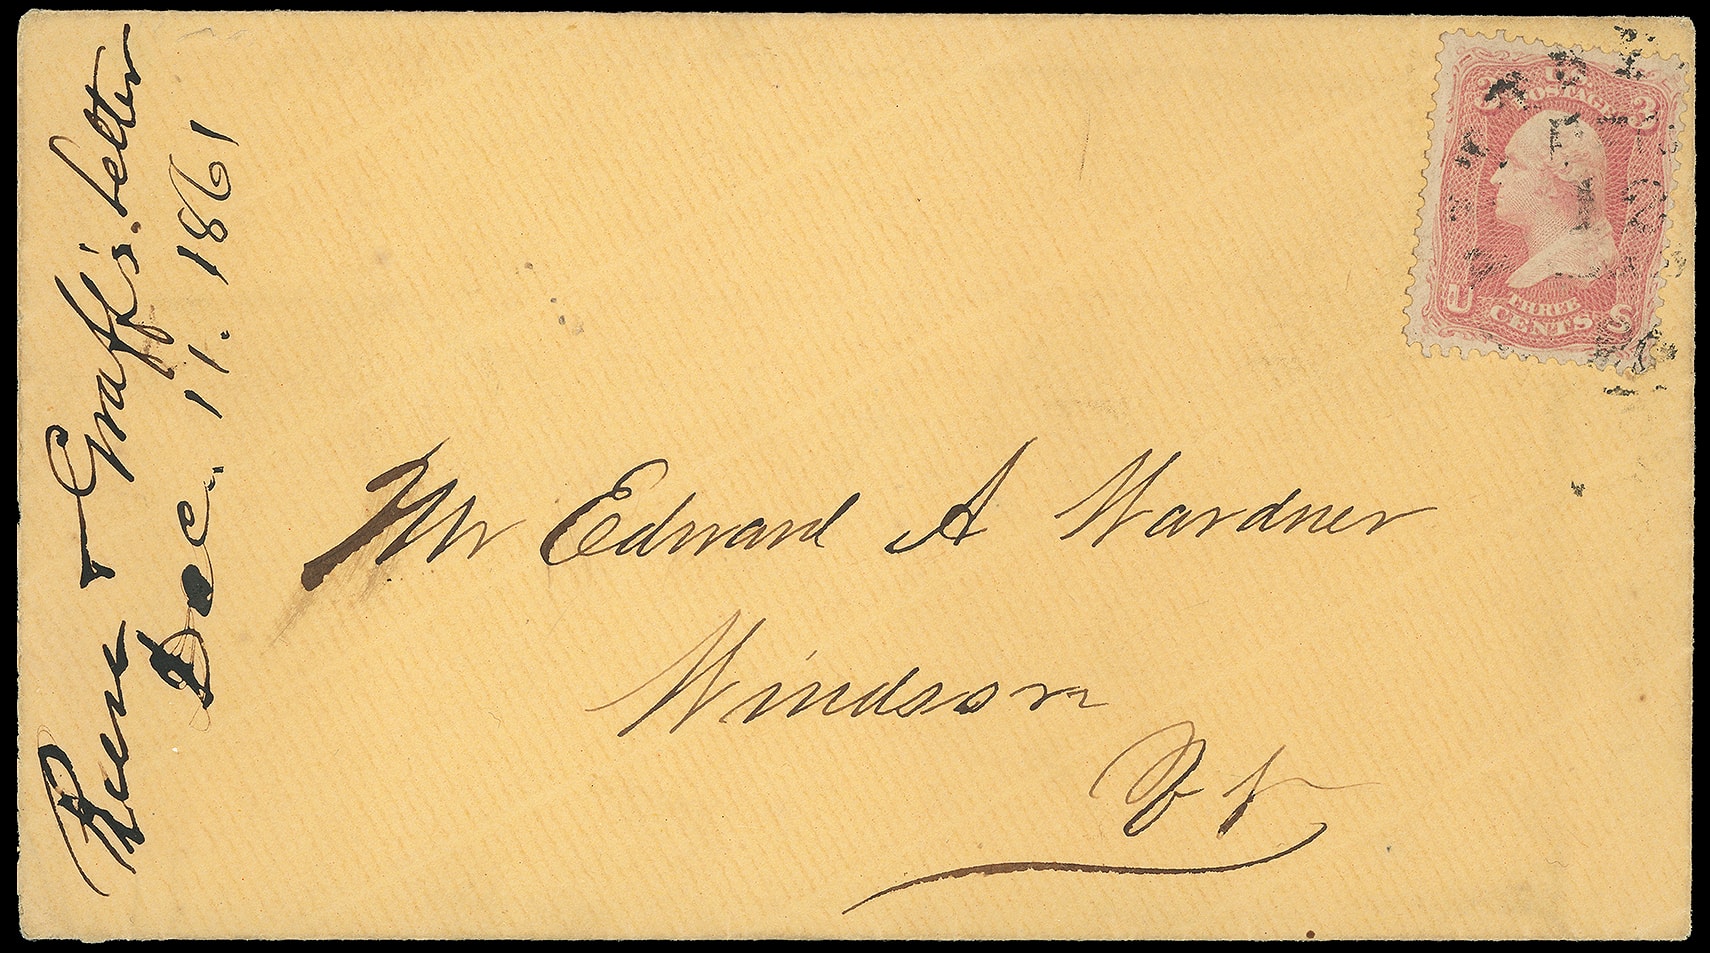 & Graff's letter
Dec. 11. 1861
3 U.S. 3
POSTAGE
THREE
U CENTS S
Mr Edward A Wardner
Windsor
Vt